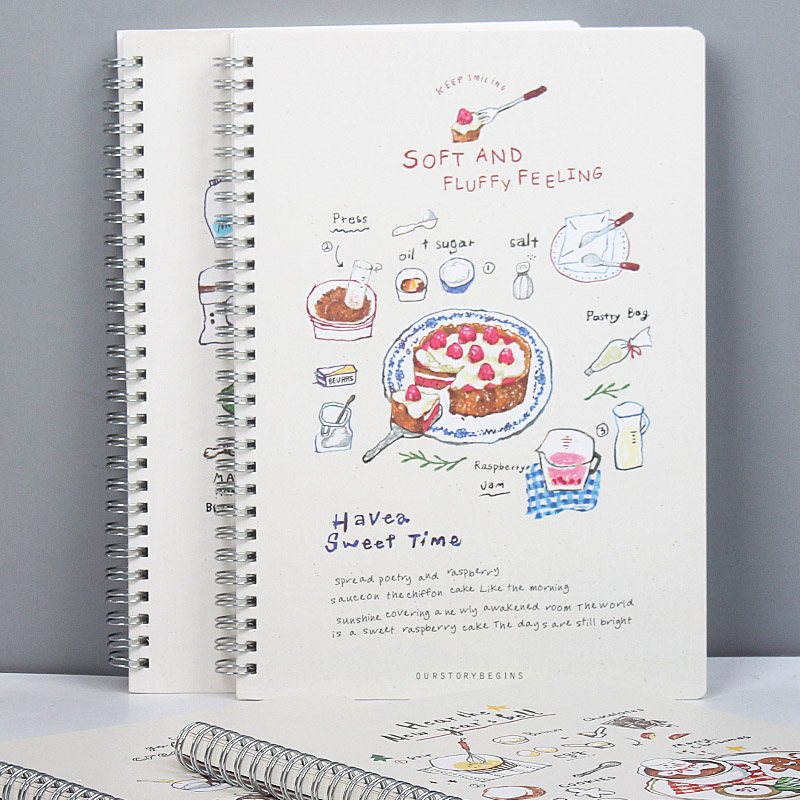 KEEP SMILING
SOFT AND
FLUFFY FEELING
Press
②
oil + sugar
①
salt
Pastry Bag
BEURRS
③
Raspberry
Jam
MA
B
Havea
Sweet Time
spread poetry and raspberry
sauceon thechiffon cake Like the morning
sunshine covering a ne wly awakened room The world
is a sweet raspberry cake The days are still bright
OURSTORYBEGINS
Hear the
New Year's Bell